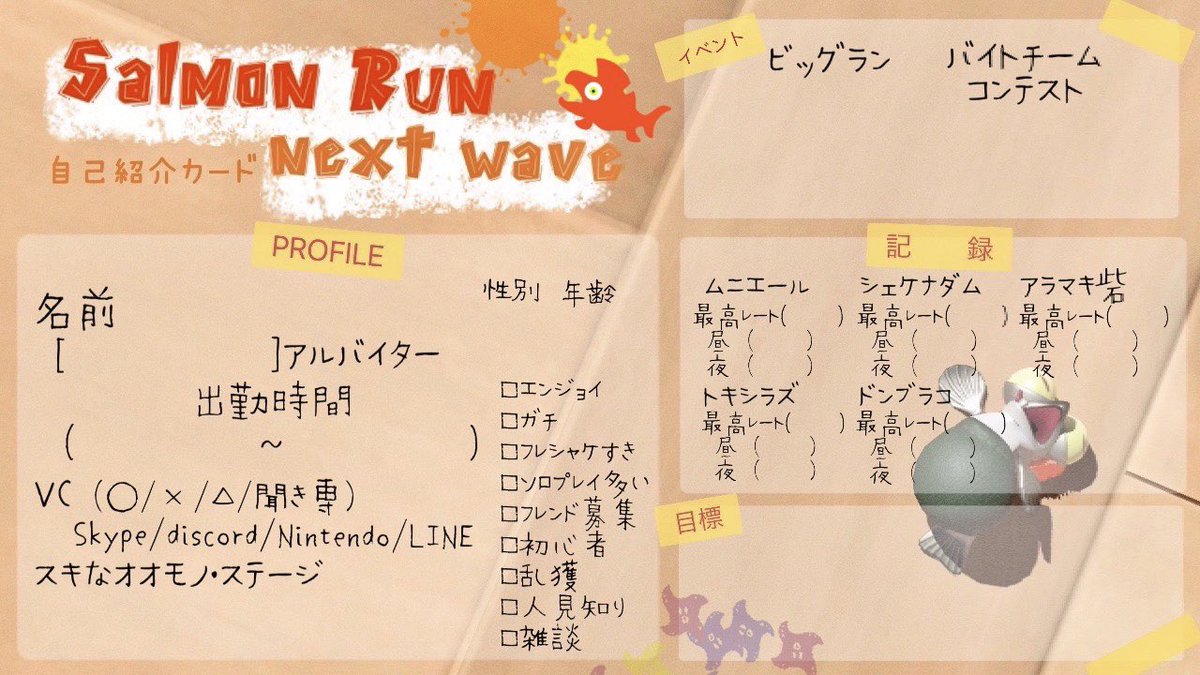 SalMON RUN
NeXt wave
自己紹介カード
イベント
ビッグラン
バイトチーム
コンテスト
PROFILE
性別 年齢
名前
[ ]アルバイター
出勤時間
( ～ )
VC (○/×/△/聞き専)
Skype/discord/Nintendo/LINE
スキなオオモノ・ステージ
□エンジョイ
□ガチ
□フレシャケすき
□ソロプレイ多い
□フレンド募集
□初心者
□乱獲
□人見知り
□雑談
記 録
ムニエール
最高レート( )
昼 ( )
夜 ( )
シェケナダム
最高レート( )
昼 ( )
夜 ( )
アラマキ砦
最高レート( )
昼 ( )
夜 ( )
トキシラズ
最高レート( )
昼 ( )
夜 ( )
ドンブラコ
最高レート( )
昼 ( )
夜 ( )
目標